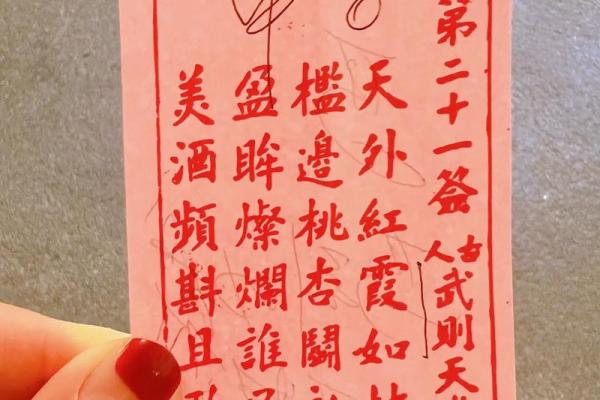 第二十一签
古人武則天
天外紅霞如
檻邊桃杏鬪
盈眸燦爛誰
美酒頻斟且